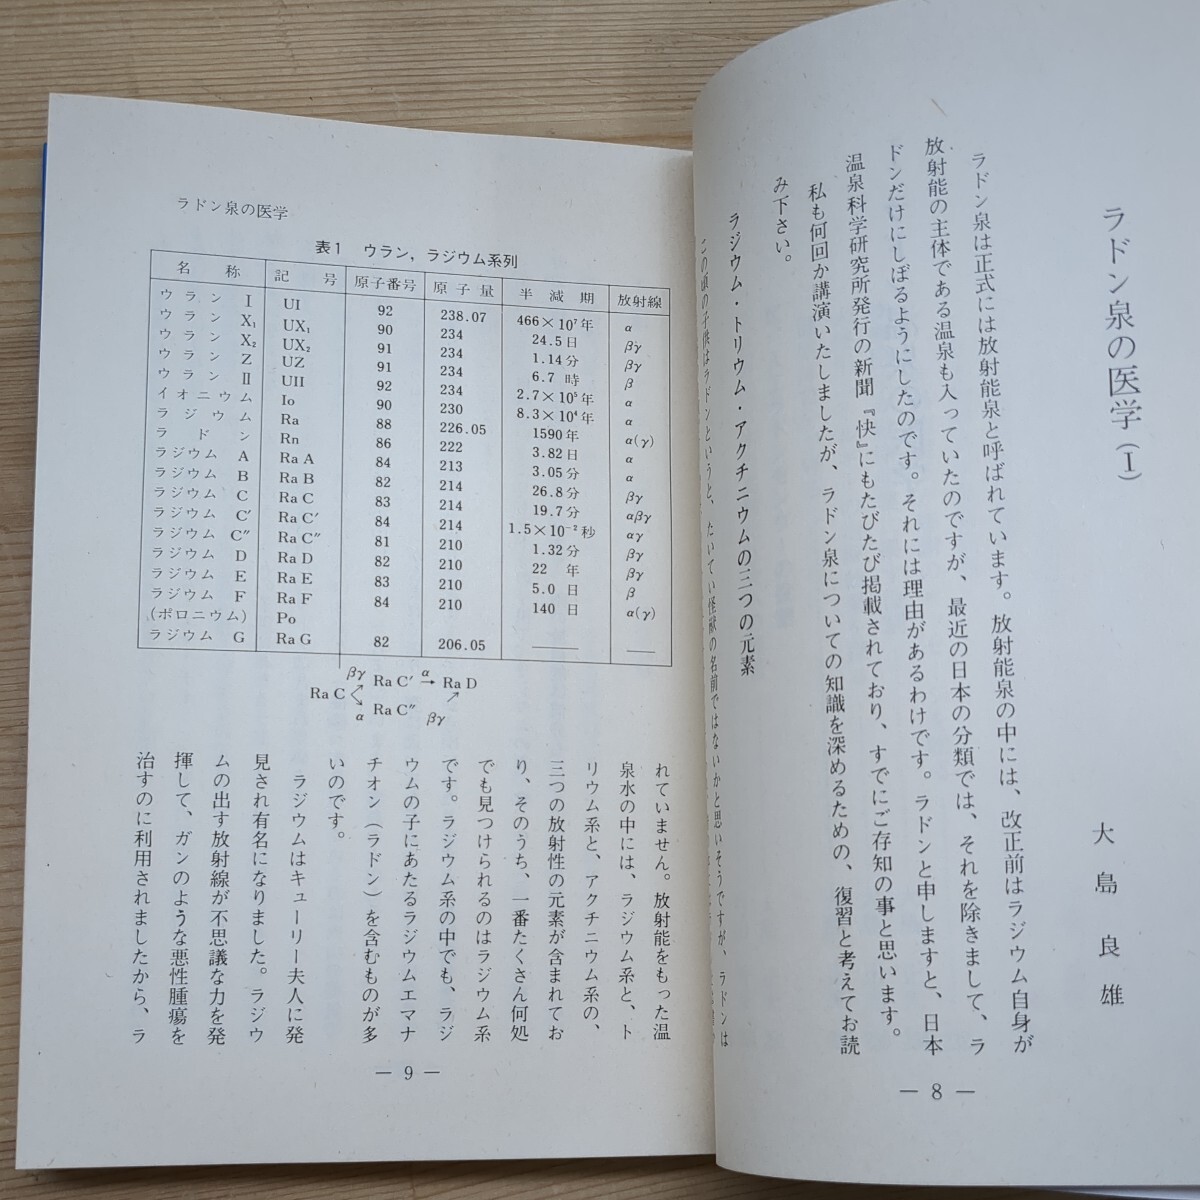 ラドン泉の医学(Ⅰ)
大島良雄
ラドン泉は正式には放射能泉と呼ばれています。放射能泉の中には、改正前はラジウム自身が
放射能の主体である温泉も入っていたのですが、最近の日本の分類では、それを除きまして、ラ
ドンだけにしぼるようにしたのです。それには理由があるわけです。ラドンと申しますと、日本
温泉科学研究所発行の新聞『快』にもたびたび掲載されており、すでにご存知の事と思います。
私も何回か講演いたしましたが、ラドン泉についての知識を深めるための、復習と考えてお読
み下さい。
ラジウム・トリウム・アクチニウムの三つの元素
この頃の子供はラドンというと、たいてい怪獣の名前ではないかと思いそうですが、ラドンは
— 8 —
ラドン泉の医学
表1 ウラン，ラジウム系列
名称 記号 原子番号 原子量 半減期 放射線
ウラン Ⅰ UI 92 238.07 466×10⁷年 α
ウラン X₁ UX₁ 90 234 24.5日 βγ
ウラン X₂ UX₂ 91 234 1.14分 βγ
ウラン Z UZ 91 234 6.7 時 β
ウラン Ⅱ UII 92 234 2.7×10⁵年 α
イオニウム Io 90 230 8.3×10⁴年 α
ラジウム Ra 88 226.05 1590年 α(γ)
ラドン Rn 86 222 3.82日 α
ラジウム A Ra A 84 213 3.05分 α
ラジウム B Ra B 82 214 26.8分 βγ
ラジウム C Ra C 83 214 19.7分 αβγ
ラジウム C′ Ra C′ 84 214 1.5×10⁻²秒 αγ
ラジウム C″ Ra C″ 81 210 1.32分 βγ
ラジウム D Ra D 82 210 22 年 βγ
ラジウム E Ra E 83 210 5.0 日 β
ラジウム F Ra F 84 210 140 日 α(γ)
(ポロニウム) Po
ラジウム G Ra G 82 206.05 —— ——
βγ Ra C′ α → Ra D
Ra C
α Ra C″ βγ
れていません。放射能をもった温
泉水の中には、ラジウム系と、ト
リウム系と、アクチニウム系の、
三つの放射性の元素が含まれてお
り、そのうち、一番たくさん何処
でも見つけられるのはラジウム系
です。ラジウム系の中でも、ラジ
ウムの子にあたるラジウムエマナ
チオン（ラドン）を含むものが多
いのです。
ラジウムはキューリー夫人に発
見され有名になりました。ラジウ
ムの出す放射線が不思議な力を発
揮して、ガンのような悪性腫瘍を
治すのに利用されましたから、ラ
— 9 —